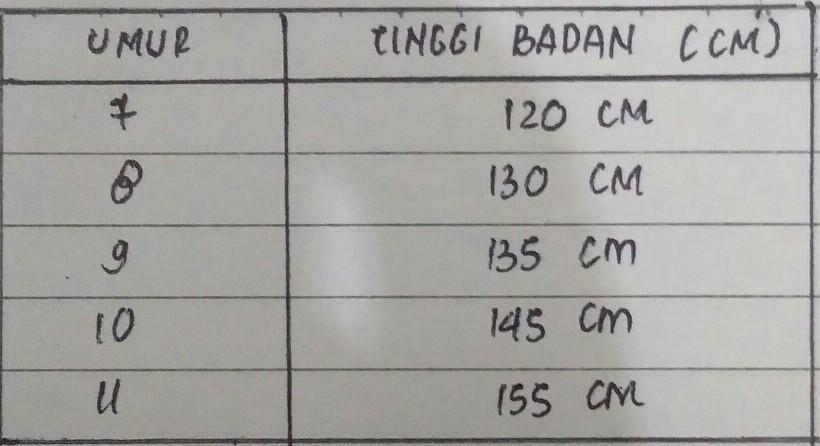 UMUR TINGGI BADAN (CM)
7 120 CM
8 130 CM
9 135 CM
10 145 CM
11 155 CM